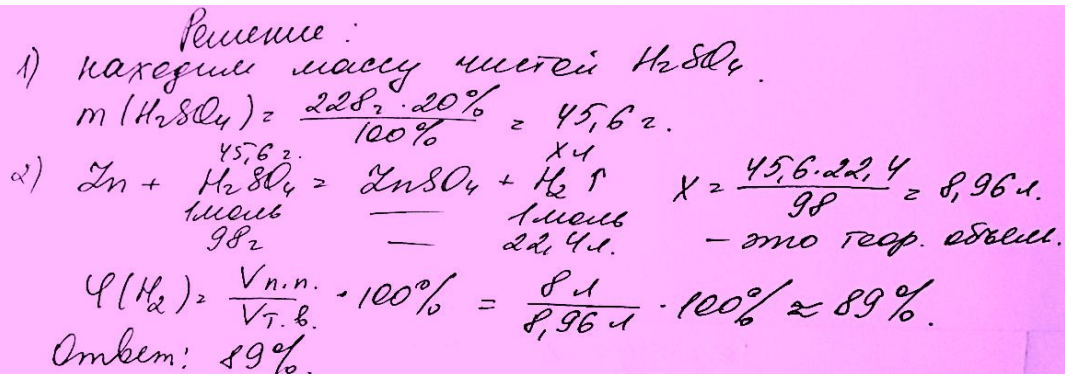 Решение:
1) находим массу чистой H₂SO₄.
m(H₂SO₄) = 228г · 20% / 100% = 45,6 г.
45,6 г. x л
2) Zn + H₂SO₄ = ZnSO₄ + H₂ ↑ X = 45,6·22,4 / 98 = 8,96 л.
1моль — 1моль
98г — 22,4 л. – это теор. объем.
φ(H₂) = Vп.п. / Vт.в. · 100% = 8 л / 8,96 л · 100% ≈ 89%.
Ответ: 89%.